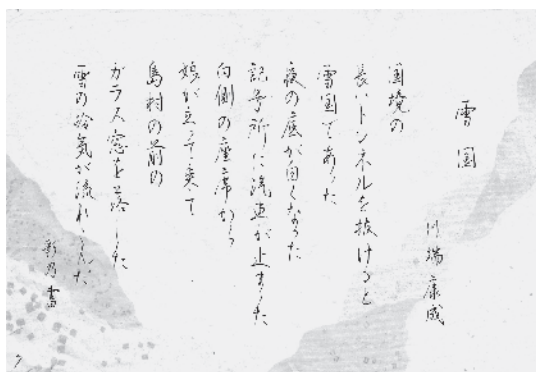 雪国
川端康成
国境の
長いトンネルを抜けると
雪国であった
夜の底が白くなった
記号所に汽車が止まった
向側の座席から
娘が立って来て
島村の前の
ガラス窓を落した
雪の冷気が流れこんだ